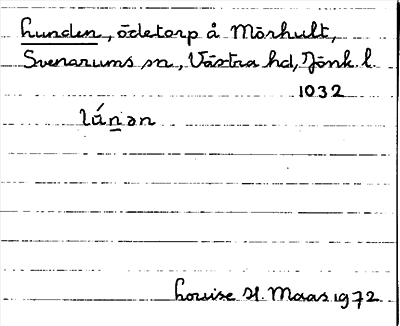 Lunden, ödetorp å Mörhult,
Svenarums sn, Västra hd, Jönk. l.
1032
lúnən
Louise H. Maas 1972